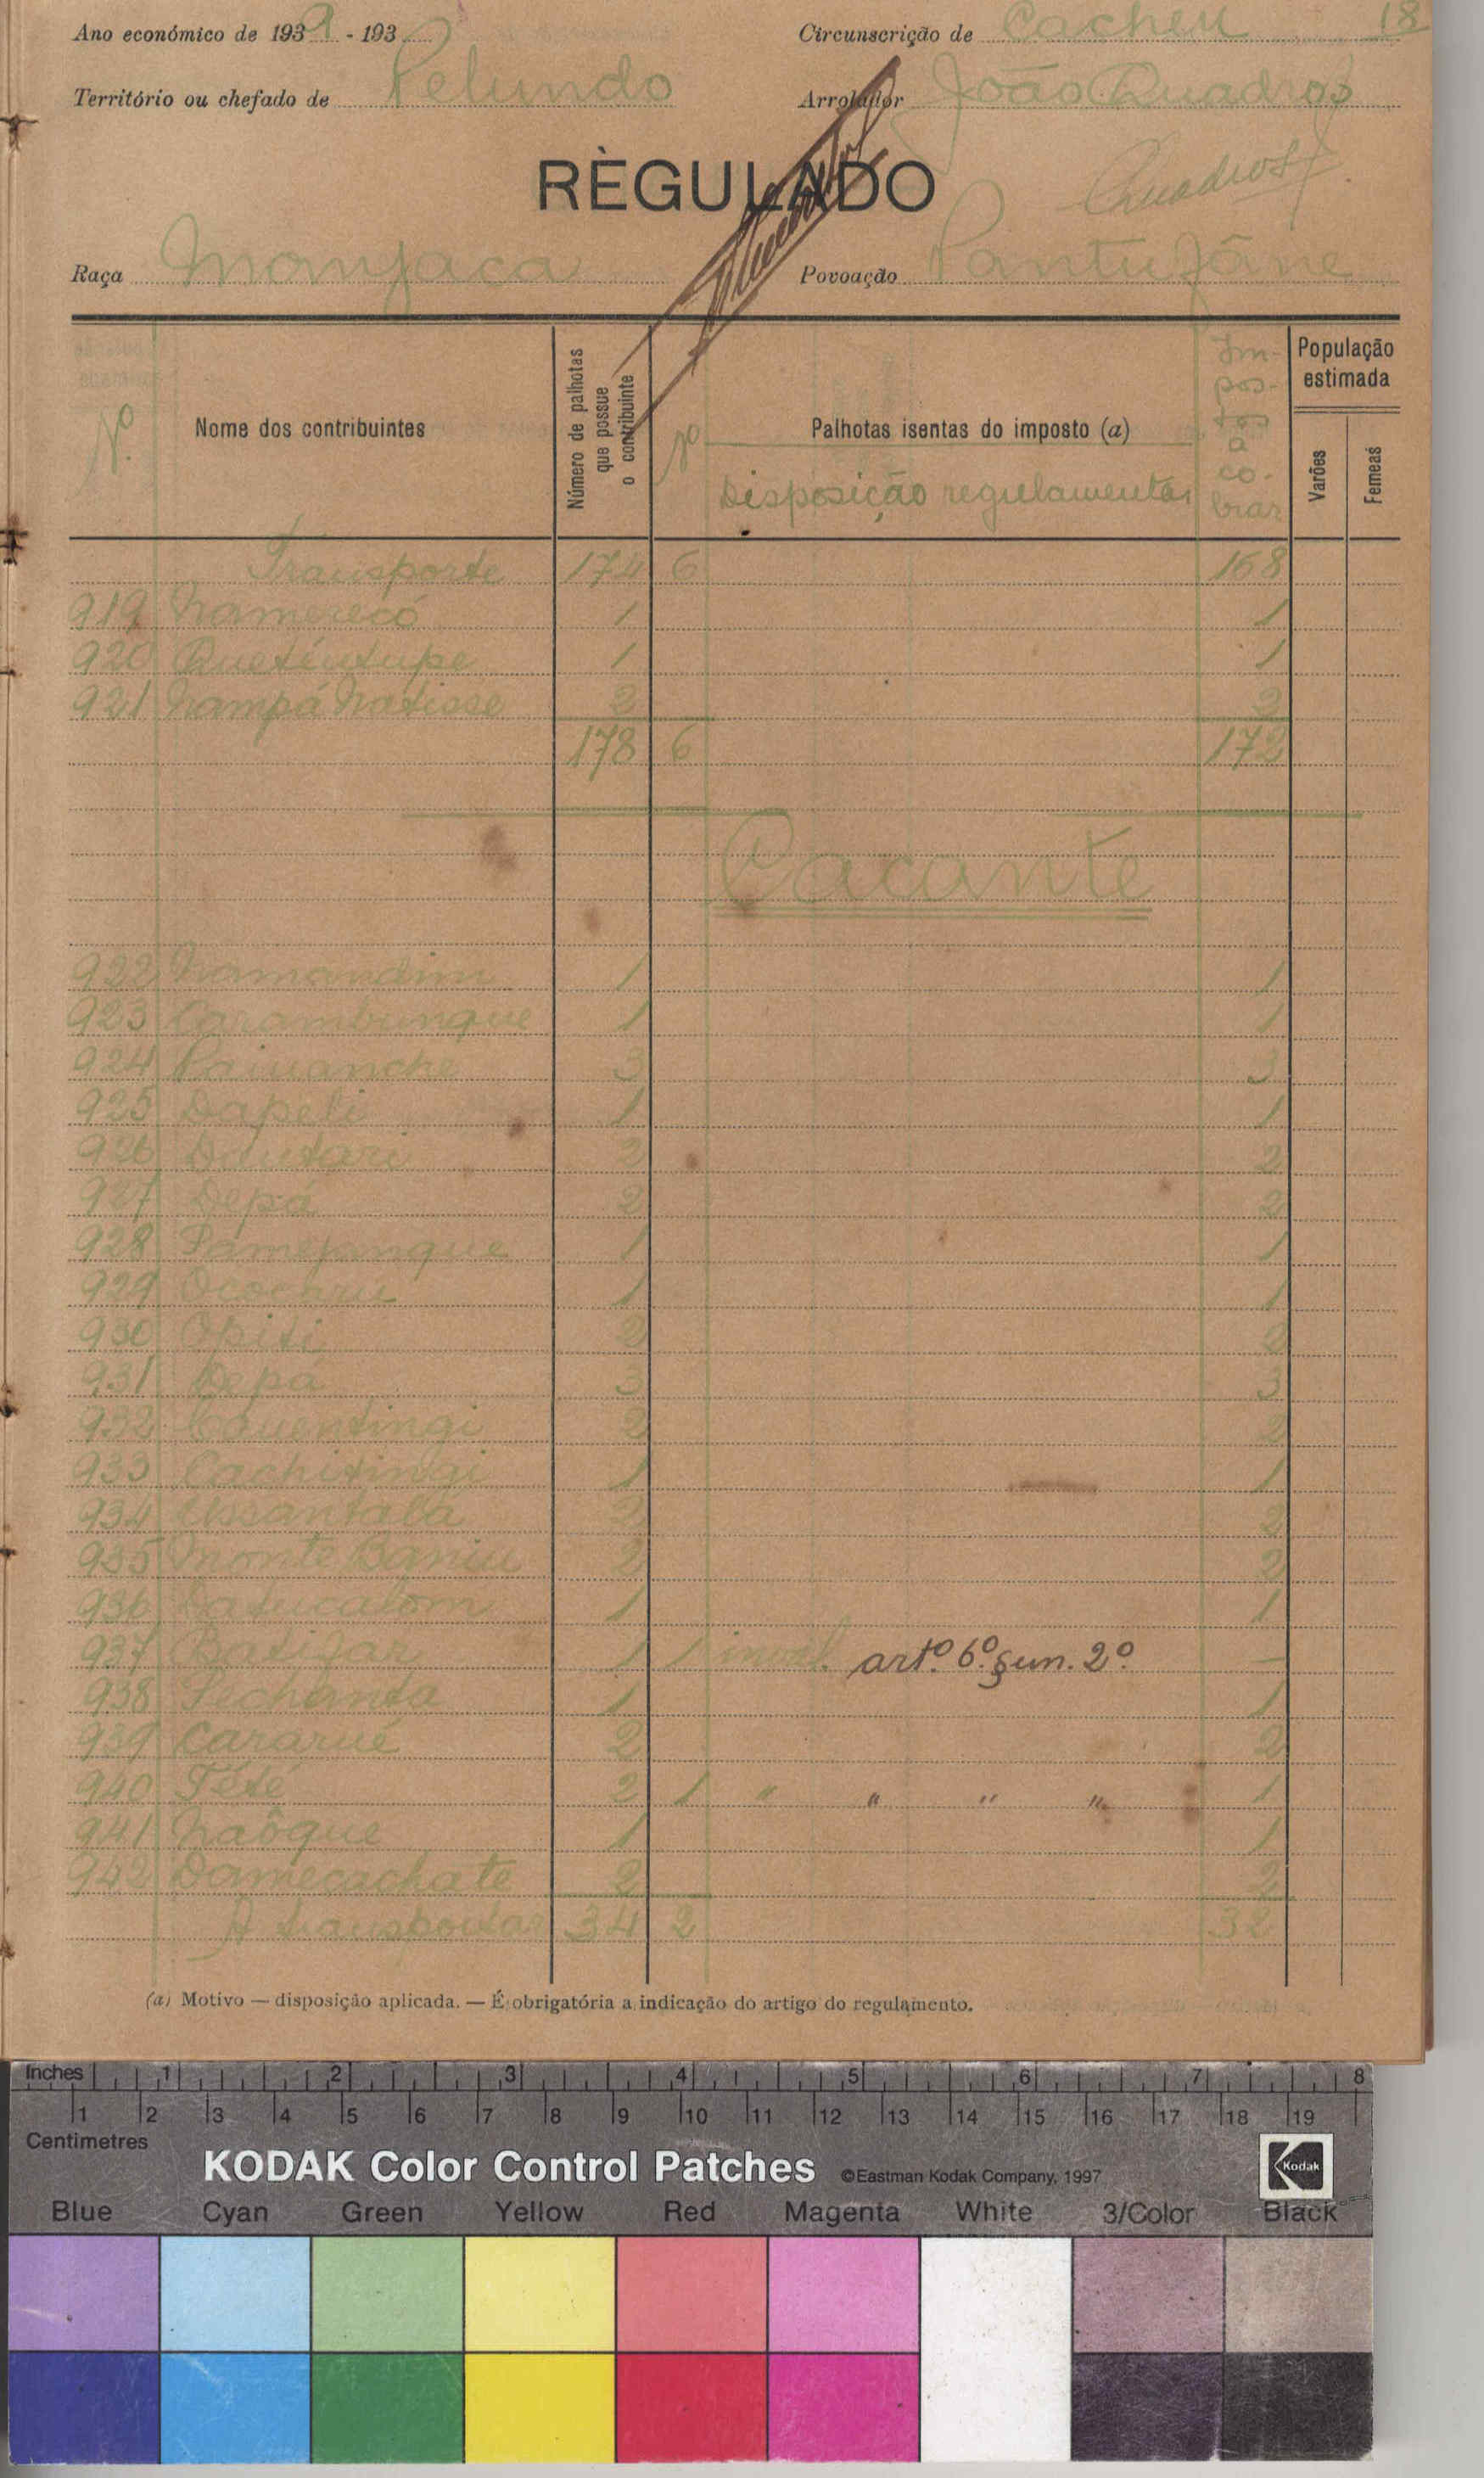 Ano económico de 1939 - 193
Circunscrição de Cacheu 18
Território ou chefado de Pelundo
Arrolador João Quadros
RÈGULADO
Quadros
Raça Manjaca
Povoação Pantufâne
Nº
Nome dos contribuintes
Número de palhotas que possue o contribuinte
Nº
Palhotas isentas do imposto (a)
Disposição regulamentar
Im-
pos-
tos
a
co-
brar
População estimada
Varões
Femeas
Transporte 174 6 168
919 Namerecó 1 1
920 Queténtupe 1 1
921 Nampá Natisse 2 2
178 6 172
Cacante
922 Namandim 1 1
923 Carambungue 1 1
924 3 3
925 Dapeli 1 1
926 Dautari 2 2
927 Depá 2 2
928 1 1
929 1 1
930 Opiti 2 2
931 Depá 3 3
932 Cauentingi 2 2
933 Cachitingi 1 1
934 Ussantalá 2 2
935 Monte Baniu 2 2
936 Datucalom 1 1
937 1 1 invál. artº. 6º. §un. 2º. —
938 1 1
939 Cararué 2 2
940 Tété 2 1 " " " " 1
941 Naôque 1 1
942 Damecachate 2 2
A transportar 34 2 32
(a) Motivo — disposição aplicada. — É obrigatória a indicação do artigo do regulamento.
Inches 1 2 3 4 5 6 7 8
1 2 3 4 5 6 7 8 9 10 11 12 13 14 15 16 17 18 19
Centimetres
KODAK Color Control Patches ©Eastman Kodak Company, 1997 Kodak
Blue Cyan Green Yellow Red Magenta White 3/Color Black